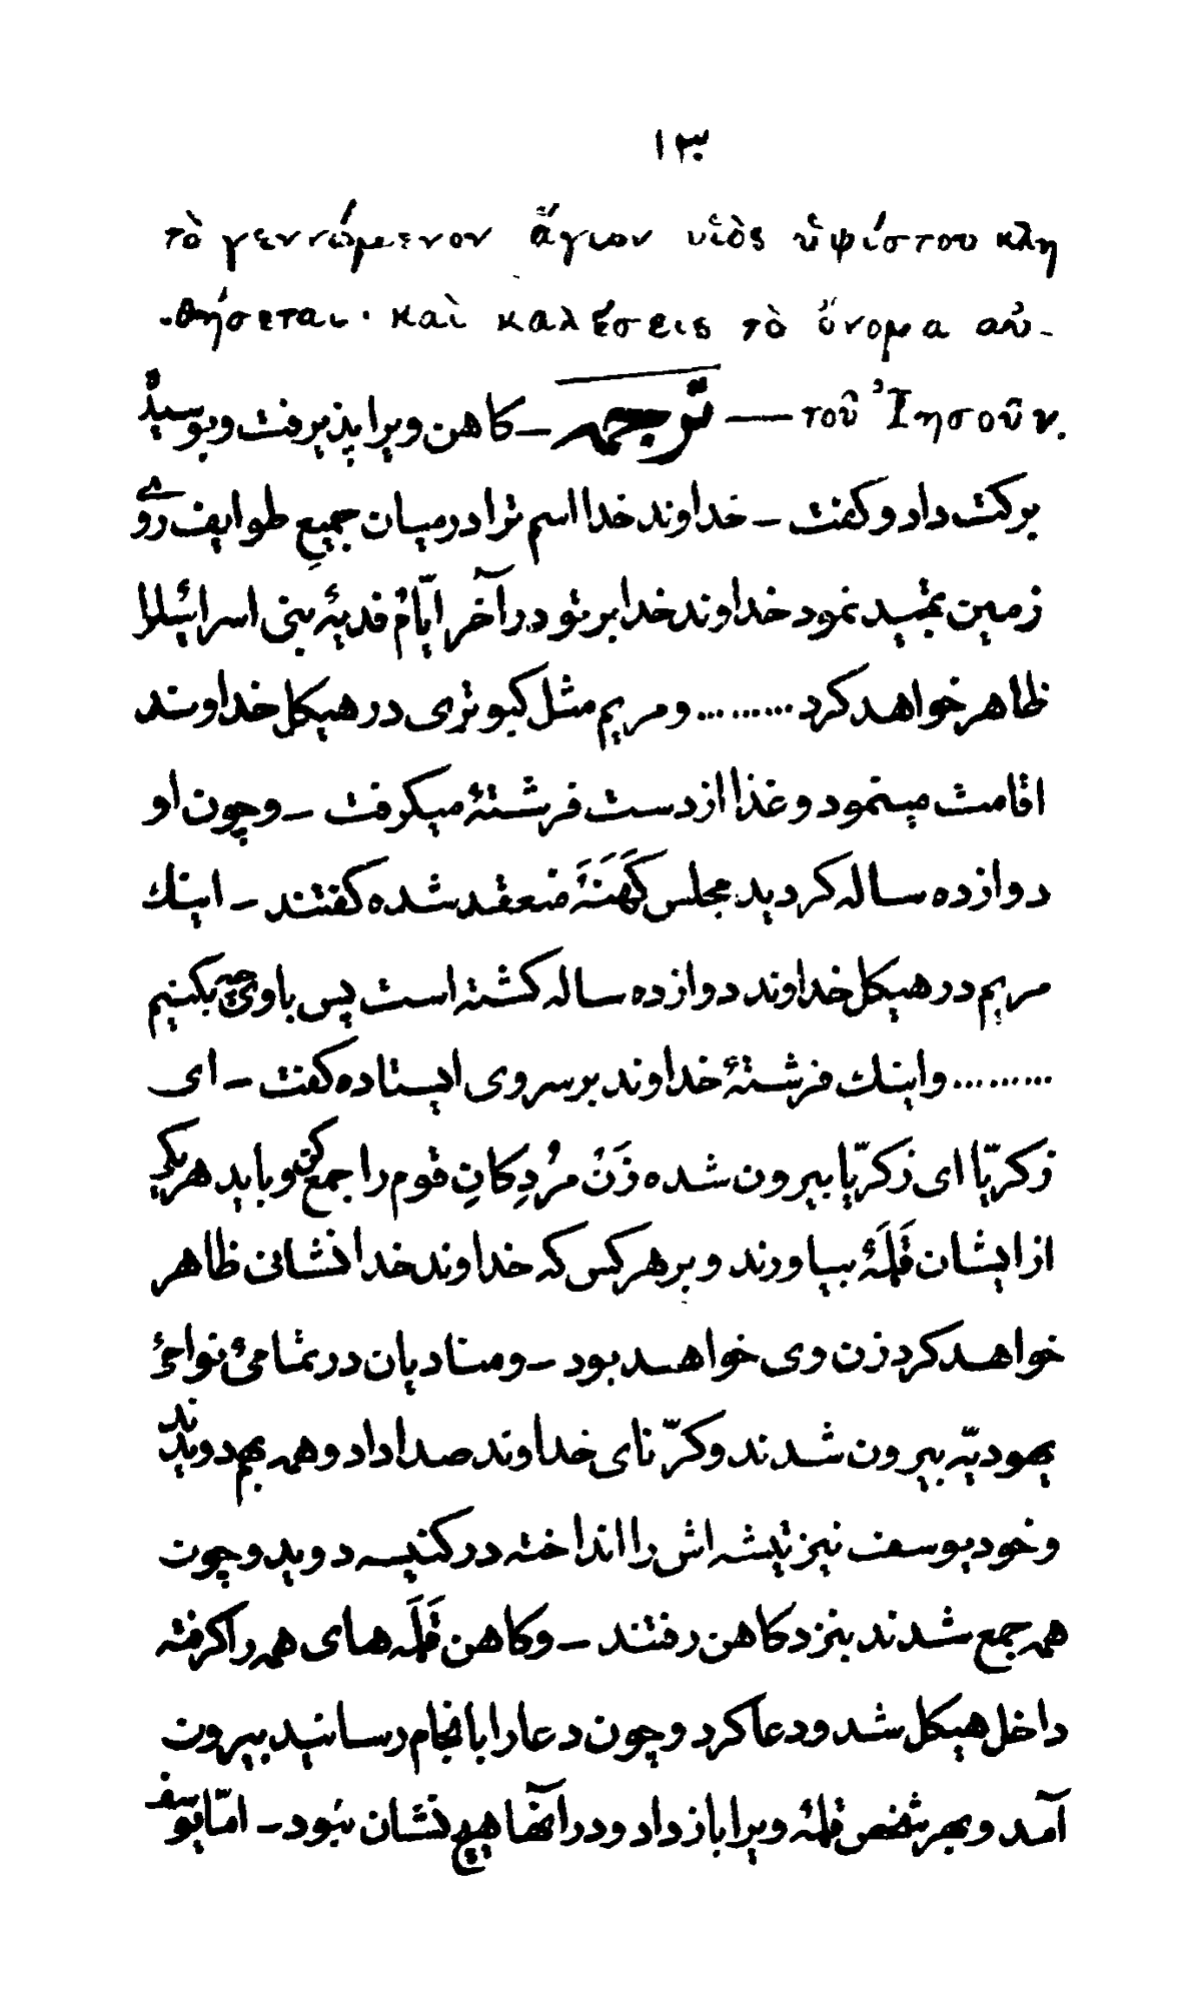 ۱۳
τὸ γεννώμενον ἅγιον υἱὸς ὑψίστου κλη
-θήσεται· καὶ καλέσεις τὸ ὄνομα αὐ-
τοῦ Ἰησοῦν. — ترجمه — کاهن ویرا پذیرفت و بوسیدُ
برکت داد و کفت — خداوند خدا اسم ترا در میان جمیعِ طوایف روی
زمین تمجید نمود خداوند خدا بر تو در آخر ایّام فدیهٔ بنی اسرائیلرا
ظاهر خواهد کرد ......... و مریم مثل کبوتری در هیکل خداوند
اقامت مینمود و غذا از دست فرشتهٔ میکرفت — و چون او
دوازده ساله کردید مجلس کَهَنَهٔ منعقد شده کفتند — اینك
مریم در هیکل خداوند دوازده ساله کشته است پس با وی چه بکنیم
......... و اینك فرشتهٔ خداوند بر سر وی ایستاده کفت — ای
زکریّا ای زکریّا بیرون شده زَنْ مُرْدِکانِ قوم را جمع کن و باید هر یکی
از ایشان قَلَمهٔ بیاورند و بر هر کس که خداوند خدا نشانی ظاهر
خواهد کرد زن وی خواهد بود — و منادیان در تمامئ نواحئ
یهودیّه بیرون شدند و کرّنای خداوند صدا داد و همه بهم دویدند
و خود یوسف نیز تیشه اش را انداخته در کنیسه دوید و چون
همه جمع شدند بنزد کاهن رفتند — و کاهن قَلَمَه های همه را کرفته
داخل هیکل شد و دعا کرد و چون دعا را بانجام رسانید بیرون
آمد و بهر شخص قلمهٔ ویرا باز داد و در آنها هیچ نشان نبود — امّا یوسف